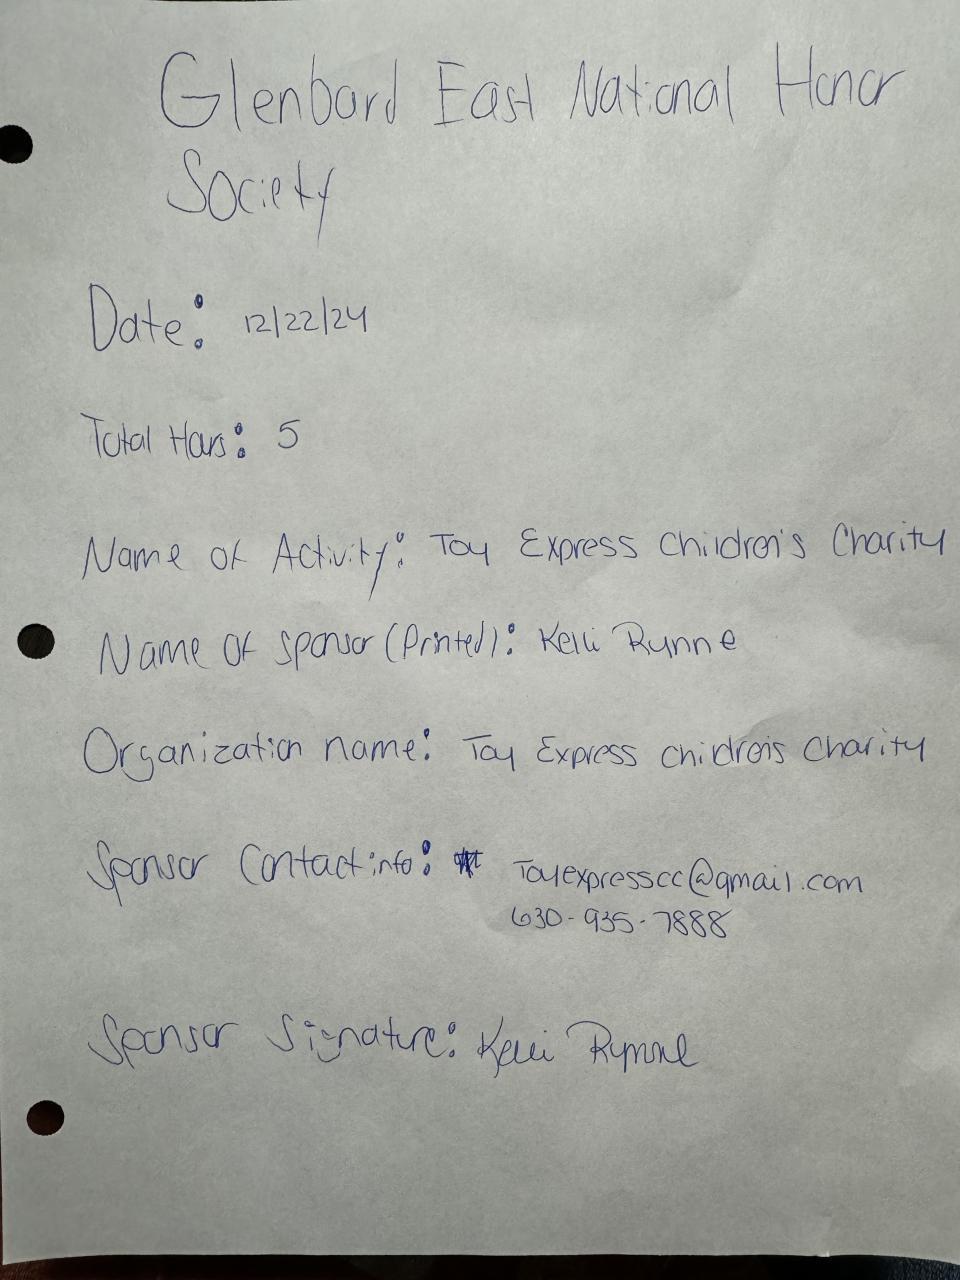 Glenbard East National Honor
Society
Date: 12/22/24
Total Hours: 5
Name of Activity: Toy Express Children's Charity
Name of Sponsor (Printed): Kelli Rynne
Organization name: Toy Express Children's Charity
Sponsor Contact info: Toyexpresscc@gmail.com
630-935-7888
Sponsor Signature: Kelli Rynne